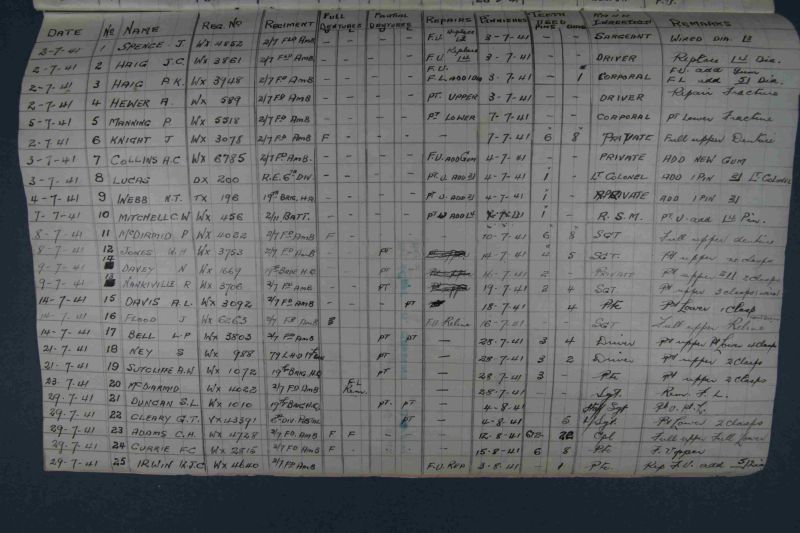 DATE No NAME REG. NO REGIMENT FULL DENTURES PARTIAL DENTURES REPAIRS FINISHED TEETH USED PINS DIAS REMARKS
3-7-41 1 SPENCE J WX 4852 2/7 FLD AMB - - - - F.U. Replace 3-7-41 - - SARGEANT WIRED DIA. 13
2-7-41 2 HAIG J.C. WX 3861 2/7 FLD AMB - - - - F.U Replace 1st 3-7-41 - - DRIVER Replace 1st Dia.
2-7-41 3 HAIG A.K. WX 3948 2/7 FD AMB - - - - F.U. F.L ADD 1 DIA 3-7-41 - 1 CORPORAL F.U. add Gum F.L add 51 Dia.
2-7-41 4 HEWER A. WX 589 2/7 FD AMB - - - - PT. UPPER 3-7-41 - - DRIVER Repair Fracture
5-7-41 5 MANNING P. WX 5518 2/7 FD AMB - - - - PT LOWER 7-7-41 - - CORPORAL PT Lower Fracture
2-7-41 6 KNIGHT J WX 3078 2/7 FD AMB F - - - - 7-7-41 6 8 PRIVATE Full upper Denture
3-7-41 7 COLLINS A.C WX 6785 2/7 FD AMB. - - - - F.U. ADD GUM 4-7-41 - - PRIVATE ADD NEW GUM
3-7-41 8 LUCAS DX 200 R.E. 6TH DIV. - - - - PT. U. ADD 31 4-7-41 1 - LT COLONEL ADD 1 PIN 31 LT COLONEL
4-7-41 9 WEBB N.T. TX 196 19TH BRIG. H.Q. - - - - PT U. ADD 31 4-7-41 1 - PRIVATE ADD 1 PIN 31
7-7-41 10 MITCHELL C.W WX 456 2/11 BATT. - - - - PT U ADD 1st 1 - R.S.M. PT U- add 1st Pin.
8-7-41 11 McDIRMID P WX 4022 2/7 FD AMB F - - - - 10-7-41 6 8 SGT Full upper denture
8-7-41 12 JONES W.H WX 3753 2/7 FD AMB - - PT - 14-7-41 4 5 SGT. PT upper clasps
9-7-41 14 DAVEY N WX 1669 19TH BRIG H.Q - - PT - 16-7-41 2 - PRIVATE PT upper 2 clasps
9-7-41 13 R WX 3706 2/7 FD AMB - - PT - 19-7-41 2 4 SGT. PT upper 2 clasps
14-7-41 15 DAVIS A.L. WX 3092 2/7 FD AMB - - - PT 18-7-41 4 Pte PT Lower 1 clasp
14-7-41 16 FLOOD J WX 6263 2/7 FD AMB - - F.U Reline 16-7-41 - SGT Full upper Reline
14-7-41 17 BELL L.P WX 3803 2/7 FD AMB - - PT PT - 28-7-41 3 4 Driver PT upper PT Lower 4 clasps
21-7-41 18 NEY S WX 988 - - PT - - 28-7-41 3 2 Driver PT upper 2 clasps
21-7-41 19 SUTCLIFFE A.W WX 1072 19TH BRIG H.Q - - PT - - 28-7-41 3 Pte PT upper 2 clasps
23-7-41 20 McDIARMID WX 4022 2/7 FD AMB F.L Rem. - - - 28-7-41 - Sgt. Rem. F.L.
29-7-41 21 DUNCAN S.L. WX 1010 19TH BRIG H.Q. - - PT. PT - 4-8-41 Sgt
29-7-41 22 CLEARY G.T. VX 43591 6TH DIV. POSTAL - - - PT - 4-8-41 6 Sgt. PT Lower 2 clasps
29-7-41 23 ADAMS C.H. WX 4728 2/7 FD. AMB F F - - - 12-8-41 Cpl Full upper Full lower
29-7-41 24 CURRIE F.C WX 2815 2/7 FD AMB F - - - - 15-8-41 6 8 Pte. F. Upper
29-7-41 25 IRWIN W.J.C WX 4640 2/7 FD AMB - - - - F.U. REP 3-8-41 - 1 Pte. Rep F.U. add 51 Dia